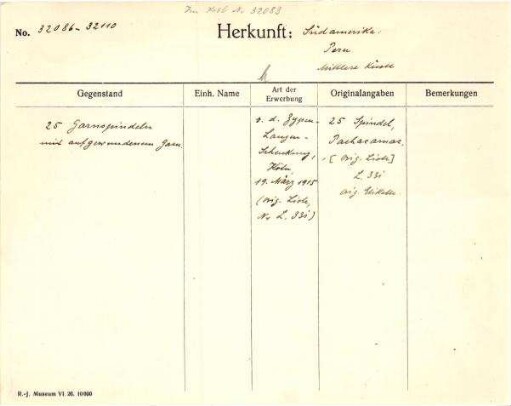 No. 32086-32110
Herkunft: Südamerika.
Peru
Mittlere Küste
Gegenstand
Einh. Name
Art der Erwerbung
Originalangaben
Bemerkungen
25 Garnspindeln
mit aufgewundenem Garn.
v. d. Zypen-
Langen-
Schenkung,
Köln,
19. März 1915
(Orig. Liste,
No L. 33i)
25 Spindel,
Pachacamac,
[Orig. Liste]
L 33i
orig. Etikette.
R.-J. Museum VI. 26. 10000